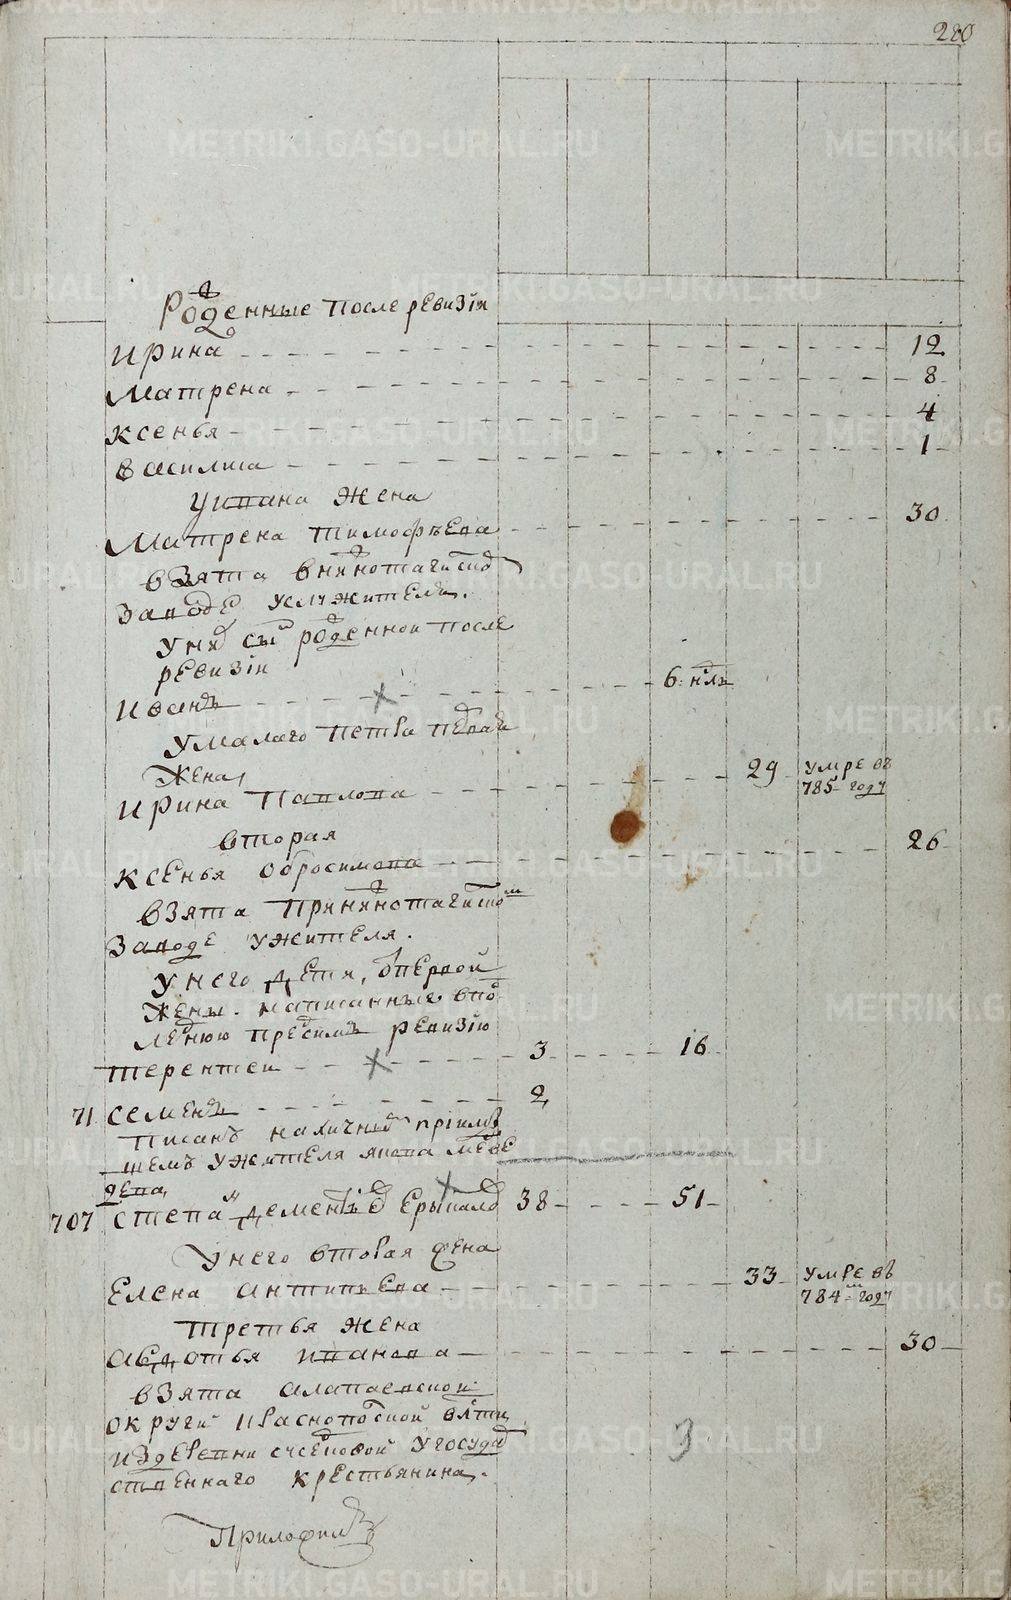 280
Роденные после ревизiи
Ирина 12
Матрена 8
Ксенья 4
Василиса 1
У Ивана жена
Матрена Тимофѣева 30
взята в нижнотагилском
заводе у служителя.
У них сын роденной после
ревизiи
Иванъ 6 нѣл
У малаго Петра первая
жена
Ирина Павлова 29 умре въ 785 году
вторая
Ксенья Обросимова 26
взята при нижнотагилском
заводе у жителя.
У него дети, от первой
жены написанные в по
следнюю пред симъ ревизiю
Терентеи 3 16
71 Семенъ 2
Писанъ наличной
шемъ у жителя Якова Медве
дева
707 Степан Дементiев 38 51
У него вторая жена
Елена Антипьева 33 умре въ 784 году
Третья жена
Авдотья Иванова 30
взята Алапаевской
округи волсти
из деревни у государ
ственнаго крестьянина.
9
METRIKI.GASO-URAL.RU